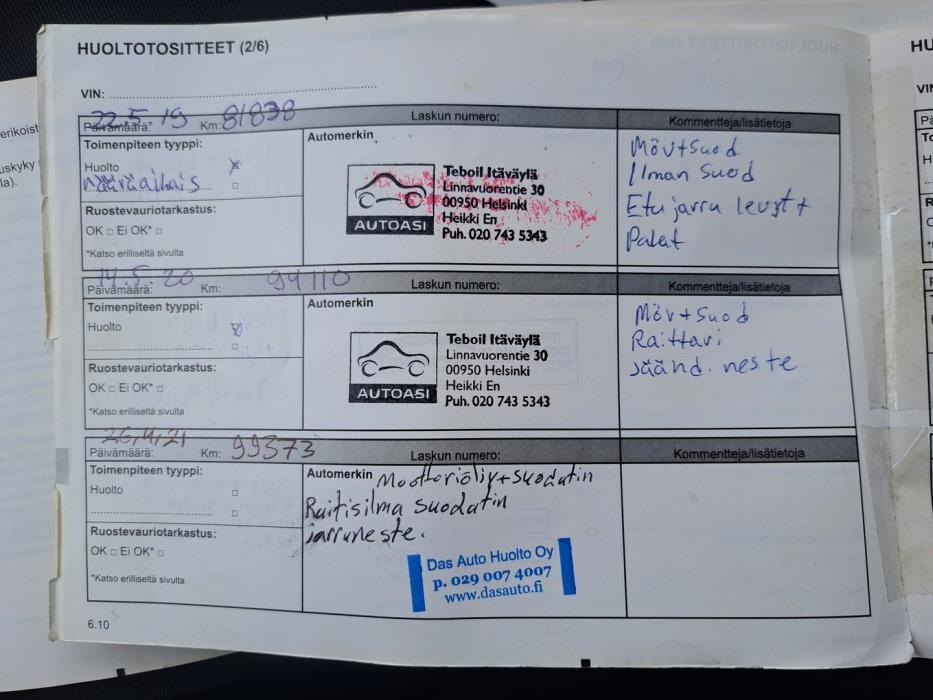 HUOLTOTOSITTEET (2/6)
VIN:
22.5.19 81838
Päivämäärä: Km: Laskun numero: Kommentteja/lisätietoja
Toimenpiteen tyyppi:
Huolto x
Määräaikais
Ruostevauriotarkastus:
OK □ Ei OK* □
*Katso erilliseltä sivulta
Automerkin
AUTOASI
Teboil Itäväylä
Linnavuorentie 30
00950 Helsinki
Heikki En
Puh. 020 743 5343
Möv+suod
Ilman suod
Etujarru levyt+
Palat
14.5.20 94110
Päivämäärä: Km: Laskun numero: Kommentteja/lisätietoja
Toimenpiteen tyyppi:
Huolto
Ruostevauriotarkastus:
OK □ Ei OK* □
*Katso erilliseltä sivulta
Automerkin
AUTOASI
Teboil Itäväylä
Linnavuorentie 30
00950 Helsinki
Heikki En
Puh. 020 743 5343
Möv+suod
Raittari
säänd. neste
26,4,21 99373
Päivämäärä: Km: Laskun numero: Kommentteja/lisätietoja
Toimenpiteen tyyppi:
Huolto □
Ruostevauriotarkastus:
OK □ Ei OK* □
*Katso erilliseltä sivulta
Automerkin Moottoriöljy+suodatin
Raitisilma suodatin
jarruneste.
Das Auto Huolto Oy
p. 029 007 4007
www.dasauto.fi
6.10
HU